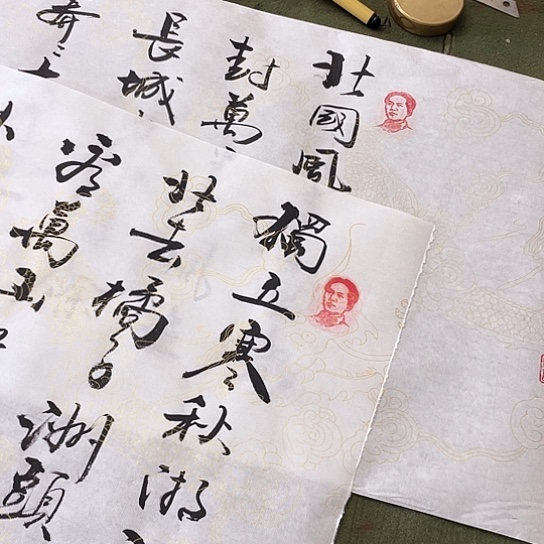 北國風
封萬
長城
莽
獨立寒秋湘
北去橘子洲頭
看萬山